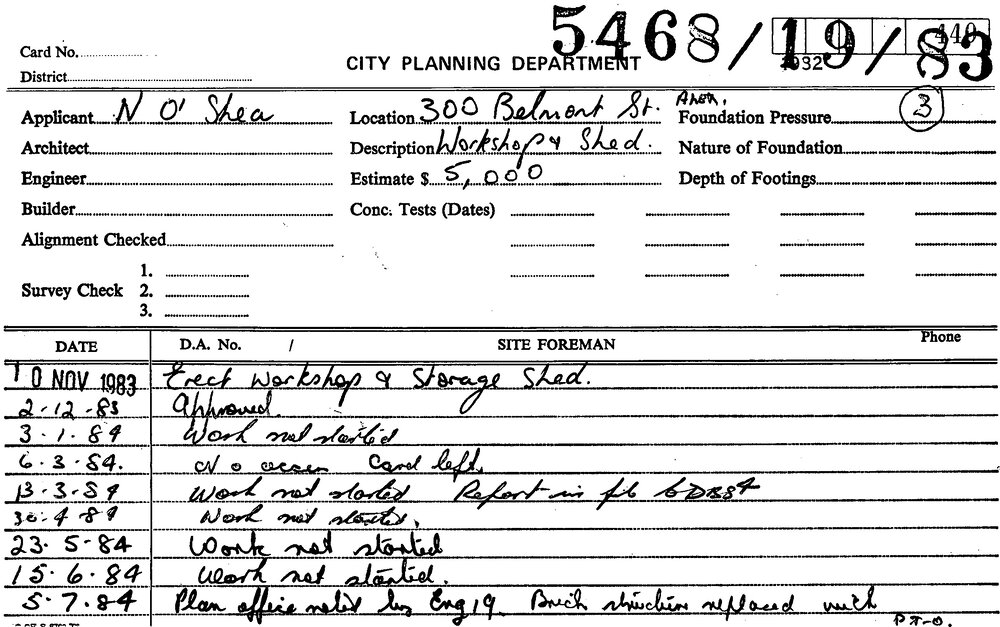 5468/19/83
Card No.
District
CITY PLANNING DEPARTMENT
Applicant N O' Shea
Location 300 Belmont St. Alex.
Foundation Pressure 3
Architect
Description Workshop & Shed.
Nature of Foundation
Engineer
Estimate $ 5,000
Depth of Footings
Builder
Conc. Tests (Dates)
Alignment Checked
1.
Survey Check 2.
3.
DATE D.A. No. / SITE FOREMAN Phone
10 NOV 1983 Erect Workshop & Storage Shed.
2-12-83 Approved.
3.1.84 Work not started
6.3.84. No access Card left
13-3-84 Work not started Report in
30.4.84 Work not started.
23.5-84 Work not started
15.6.84 Work not started.
5.7.84 Plan office noted by Eng 19. Brick structure replaced with
P.T.O.